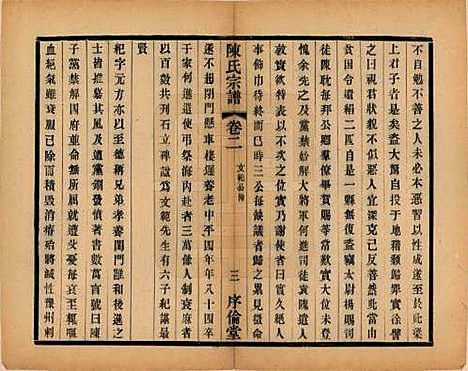 不自勉不善之人未必本惡習以性成遂至於此梁
上君子者是矣盜大驚自投於地稽顙歸罪寔徐譬
之曰視君狀貌不似惡人宜深克己反善然此當由
貧困令遺絹二匹自是一縣無復盜竊太尉楊賜司
徒陳耽每拜公卿羣僚畢賀賜等常歎寔大位未登
愧於先之及黨禁始解大將軍何進司徒袁隗遣人
敦寔欲特表以不次之位寔乃謝使者曰寔久絕人
事飾巾待終而已時三公每缺議者歸之累見徵命
遂不起閉門懸車棲遲養老中平四年年八十四卒
于家何進遣使弔祭海內赴者三萬餘人制衰麻者
以百數共刊石立碑諡為文範先生有六子紀諶最
賢
紀字元方亦以至德稱兄弟孝養閨門雝和後進之
士皆推慕其風及遭黨錮發憤著書數萬言號曰陳
子黨禁解四府並命無所屈就遭父憂每哀至輒嘔
血絕氣雖衰服已除而積毀消瘠殆將滅性豫州刺
陳氏宗譜
卷二
文範公傳
三
序倫堂